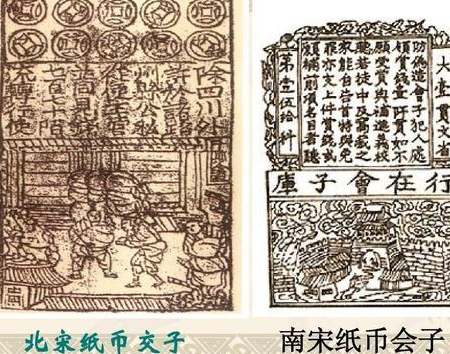 除四川外
許於諸路
州縣公私
從便主管
並同見錢
七百七十陌
流轉行使
大壹貫文省
敕偽造會子犯人處
斬賞錢壹阡貫如不
願受賞與補進義校
尉若徒中及窩藏之
家能自告首特與免
罪亦支上件賞錢或
願補前項名目者聽
第壹伍拾料
行在會子庫
北宋纸币交子
南宋纸币会子